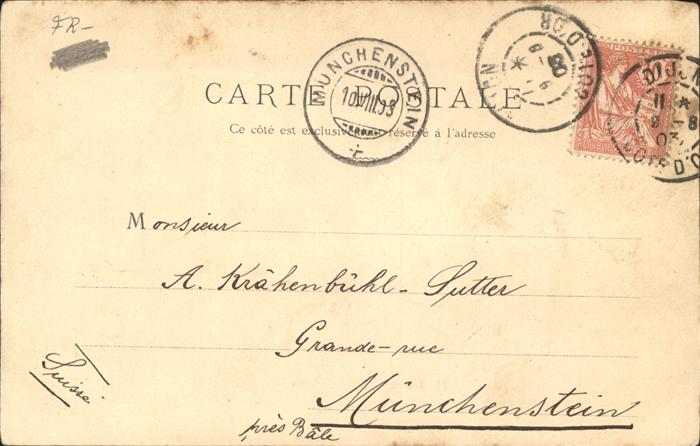 FR-
MÜNCHENSTEIN
10.VIII.03
COTE D'OR
POSTES
CARTE POSTALE
Ce côté est exclusivement réservé à l'adresse
Monsieur
A. Krähenbühl-Sutter
Grande-rue
Münchenstein
près Bâle
Suisse